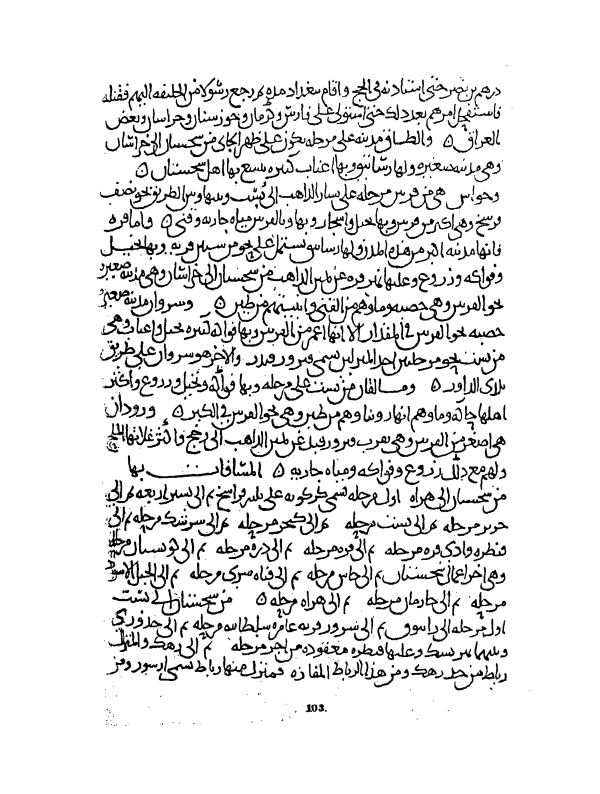 درهم بن نصر حتى استاذنه في الحج واقام ببغداد مده ثم رجع رسولا من الخليفه اليهم فقتله
فاستفحل امرهم بعد ذلك حتى استولى على فارس وكرمان وخوزستان وخراسان وبعض
العراق ٥ والطاق مدينه على مرحله على ظهر الجاي من سجستان الى خراسان
وهي مدينه صغيره ولها رساتيق وبها اعناب كثيره يتسع بها اهل سجستان ٥
هي من فرس مرحله على يسار الذاهب الى بست وبينها وبين الطريق نحو نصف
فرسخ وهي اكبر من وبها نخيل واشجار وبها وبالفرس مياه جاريه وقنى ٥ واما فره
فانها مدينه اكبر من هذه المدن ولها رساتيق تشتمل على نحو من ستين قريه وبها نخيل
وفواكه وزروع وعليها نهر فره عن يمين الذاهب من سجستان الى خراسان وهي مدينه صغيره
نحو الفرس وهي خصبه وماوهم من القنى وابنيتهم من طين ٥ وسروان مدينه صغيره
خصبه نحو الفرس في المقدار الا انها اعمر من الفرس وبها فواكه كثيره نخيل واعناب وهي
من بست نحو مرحلتين احد المنزلين يسمى فيروزقند والاخر هو سروان على طريق
بلدى الداور ٥ من بست على مرحله وبها فواكه ونخيل وزروع واكثر
اهلها حاكه وماوهم انهار وبناوهم من طين وهي نحو الفرس في الكبر ٥ وروذان
هي اصغر من الفرس وهي بقرب فيروزقند عن يمين الذاهب الى رخج واكثر غلاتها الملح
ولهم مع ذلك زروع وفواكه ومياه جاريه ٥ المسافات بها
من سجستان الى هراه اول مرحله تسمى كركويه على ثلثه فراسخ ثم الى بشتر اربعه ثم الى
جوين مرحله ثم الى بست مرحله ثم الى كنجر مرحله ثم الى سرشك مرحله ثم الى
قنطره وادي فره مرحله ثم الى فره مرحله ثم الى دره مرحله ثم الى كوستان مرحله
وهي اخر اعمال سجستان ثم الى خاستان مرحله ثم الى قناه سرى مرحله ثم الى الجبل الاسود
مرحله ثم الى جامان مرحله ثم الى هراه مرحله ٥ من سجستان الى بست
اول مرحله الى زانبوق ثم الى سروزن قريه عامره سلطانيه مرحله ثم الى حروري
وبينهما نهر نيشك وعليها قنطره معقوده من اجر مرحله ثم الى دهك والمنزل
رباط من حد دهك ومن هذا الرباط المفازه فمنزل منها رباط تسمى ابشور ومن
103.